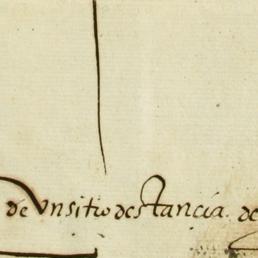 de Vnsitio destancia de